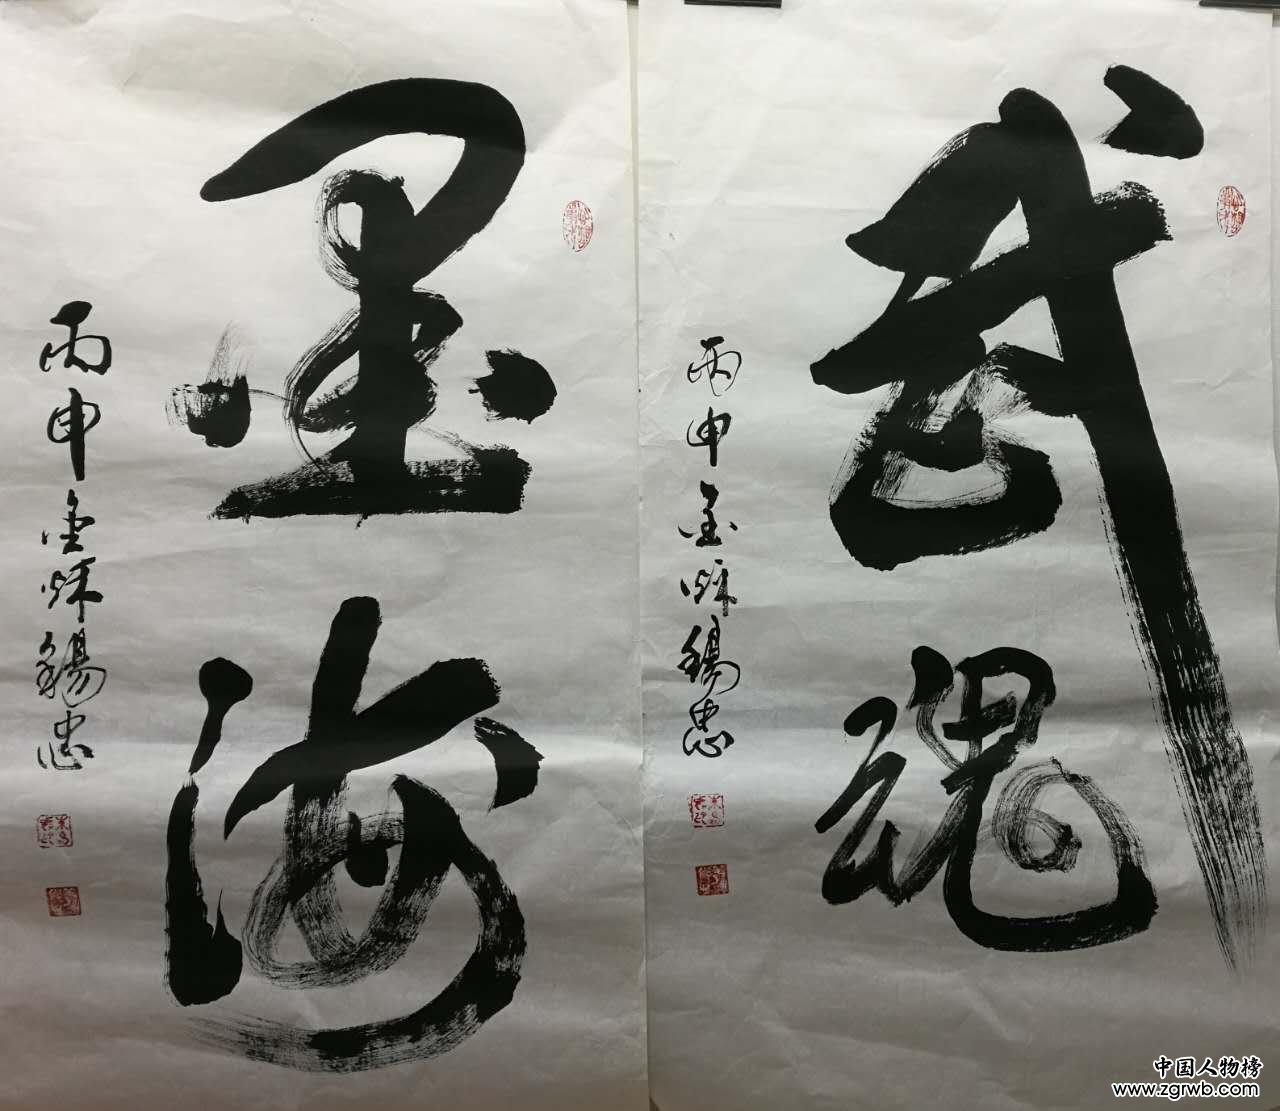 武魂
丙申金秋锡忠
墨海
丙申金秋锡忠
中国人物榜
www.zgrwb.com